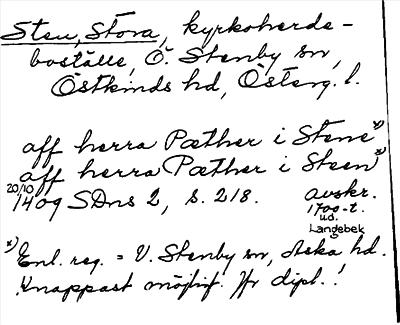 Sten, Stora, kyrkoherde-
boställe, Ö. Stenby sn,
Östkinds hd, Österg. l.
aff herra Pæther i Stene x)
aff herra Pæther i Steen x)
20/10 1409 SDns 2, s. 218. avskr.
1700-t.
u.d.
Langebek
x) Enl. reg. = V. Stenby sn, Aska hd.
Knappast möjligt. Jfr dipl.!